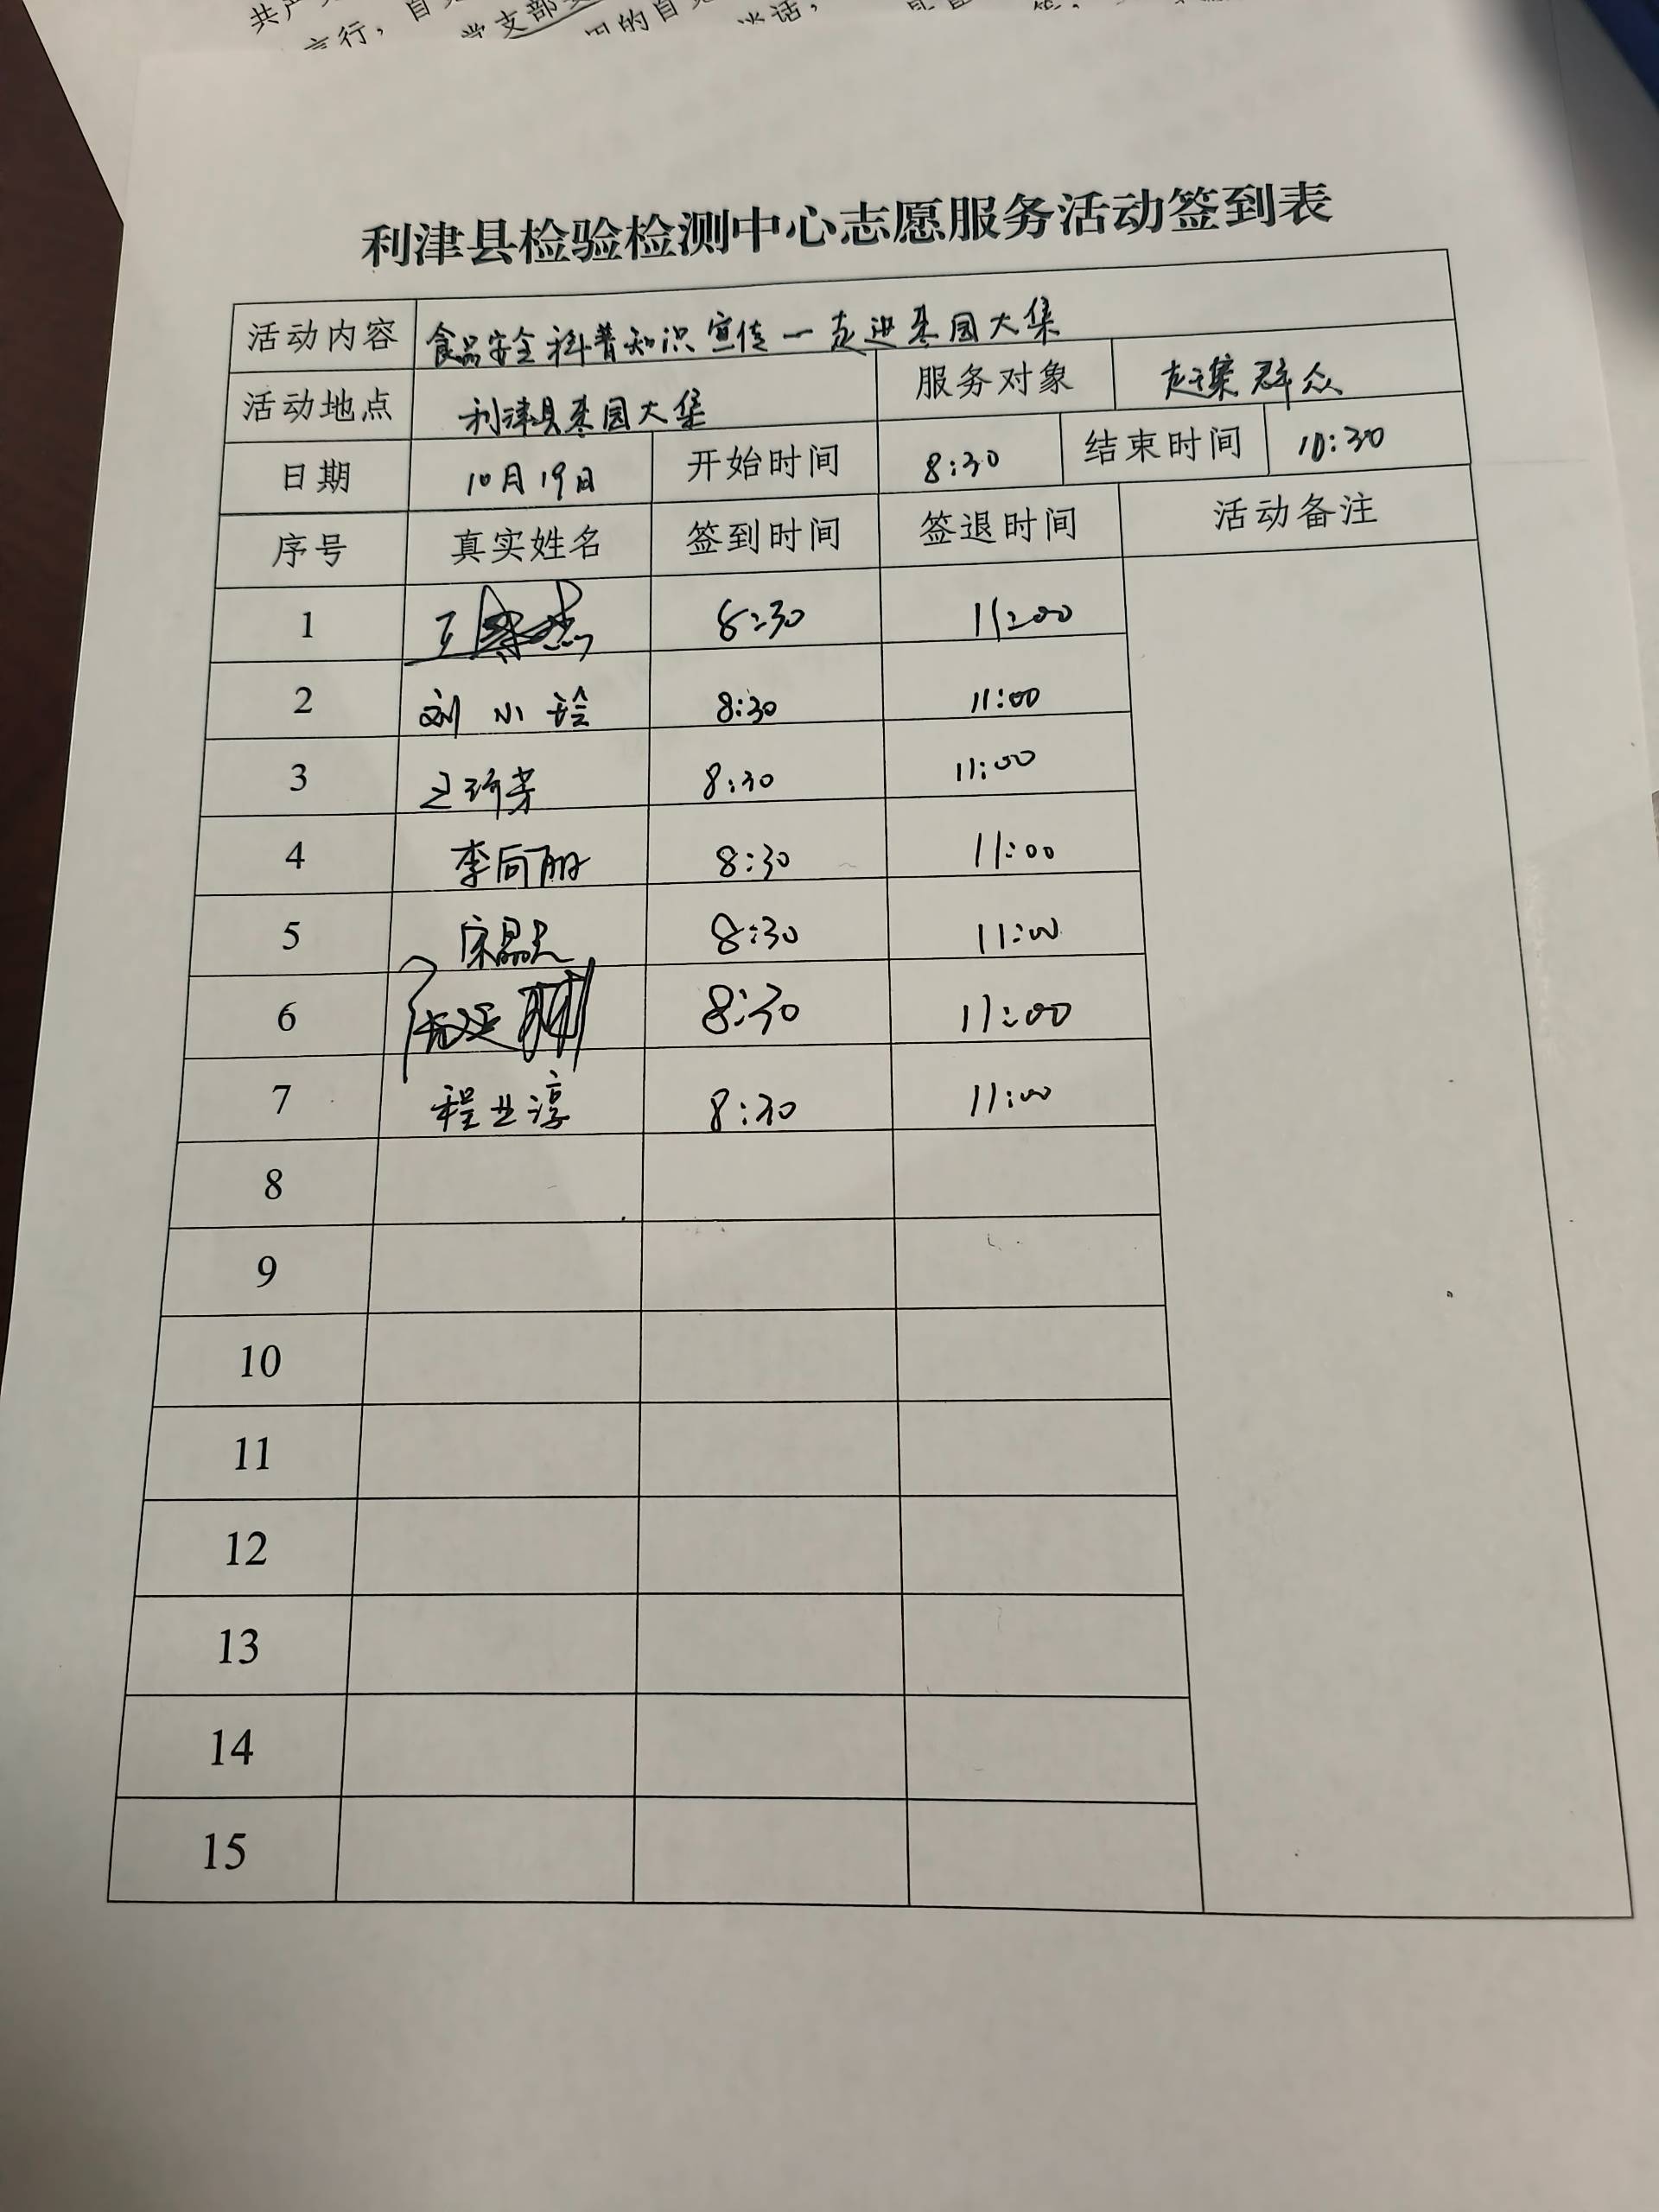 利津县检验检测中心志愿服务活动签到表
活动内容 食品安全科普知识宣传一走进枣园大集
活动地点 利津县枣园大集 服务对象 赶集群众
日期 10月19日 开始时间 8:30 结束时间 10:30
序号 真实姓名 签到时间 签退时间 活动备注
1 8:30 11:00
2 刘小玲 8:30 11:00
3 8:30 11:00
4 李向丽 8:30 11:00
5 8:30 11:00
6 8:30 11:00
7 程业淳 8:30 11:00
8
9
10
11
12
13
14
15